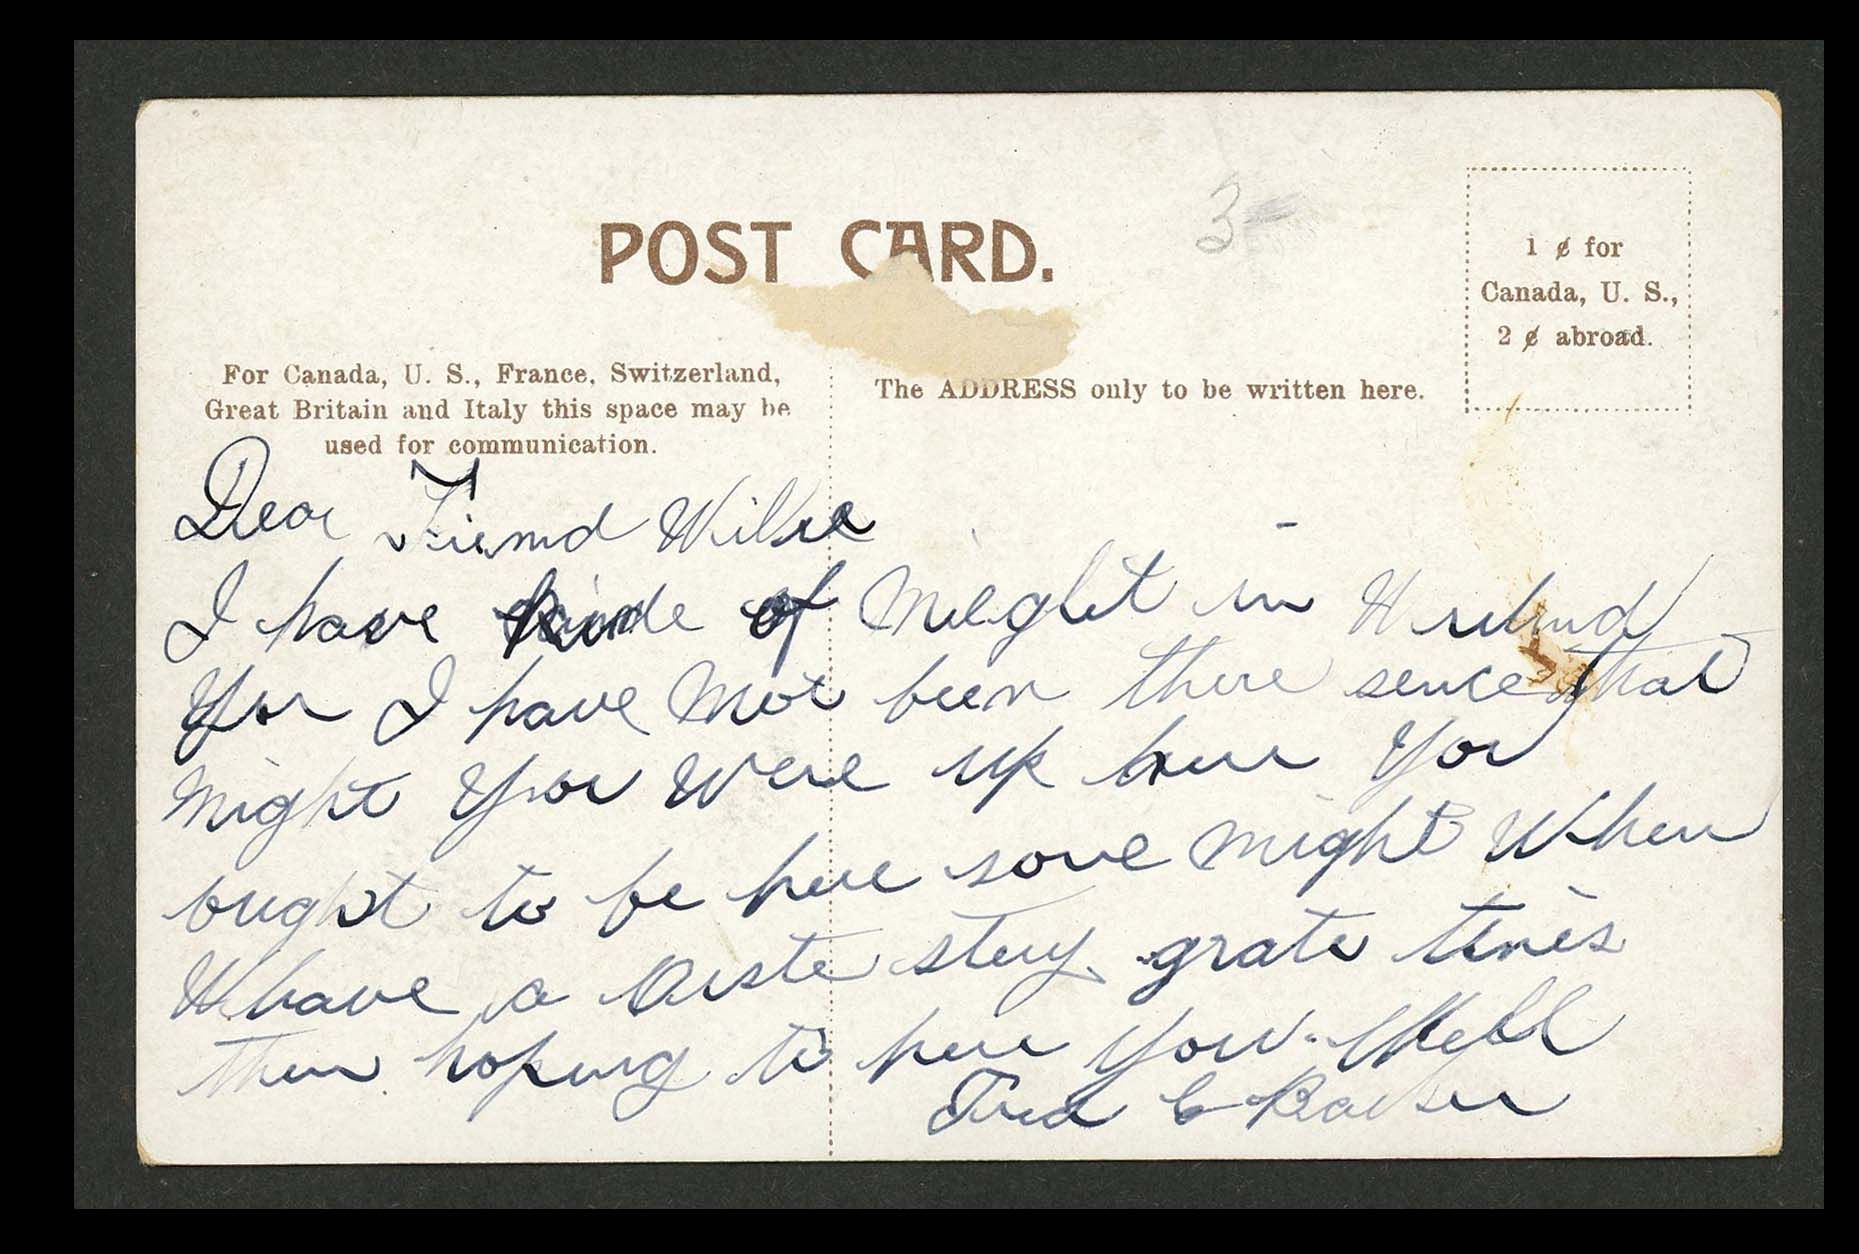 POST CARD.
3-
1 ¢ for
Canada, U. S.,
2 ¢ abroad.
For Canada, U. S., France, Switzerland,
Great Britain and Italy this space may be
used for communication.
The ADDRESS only to be written here.
Dear Friend Willie
I have kinde of in
You I have not been there sence that
night You Were up here You
ought to be here some night When
We have a grate times
then hoping to here You Well
Fred C